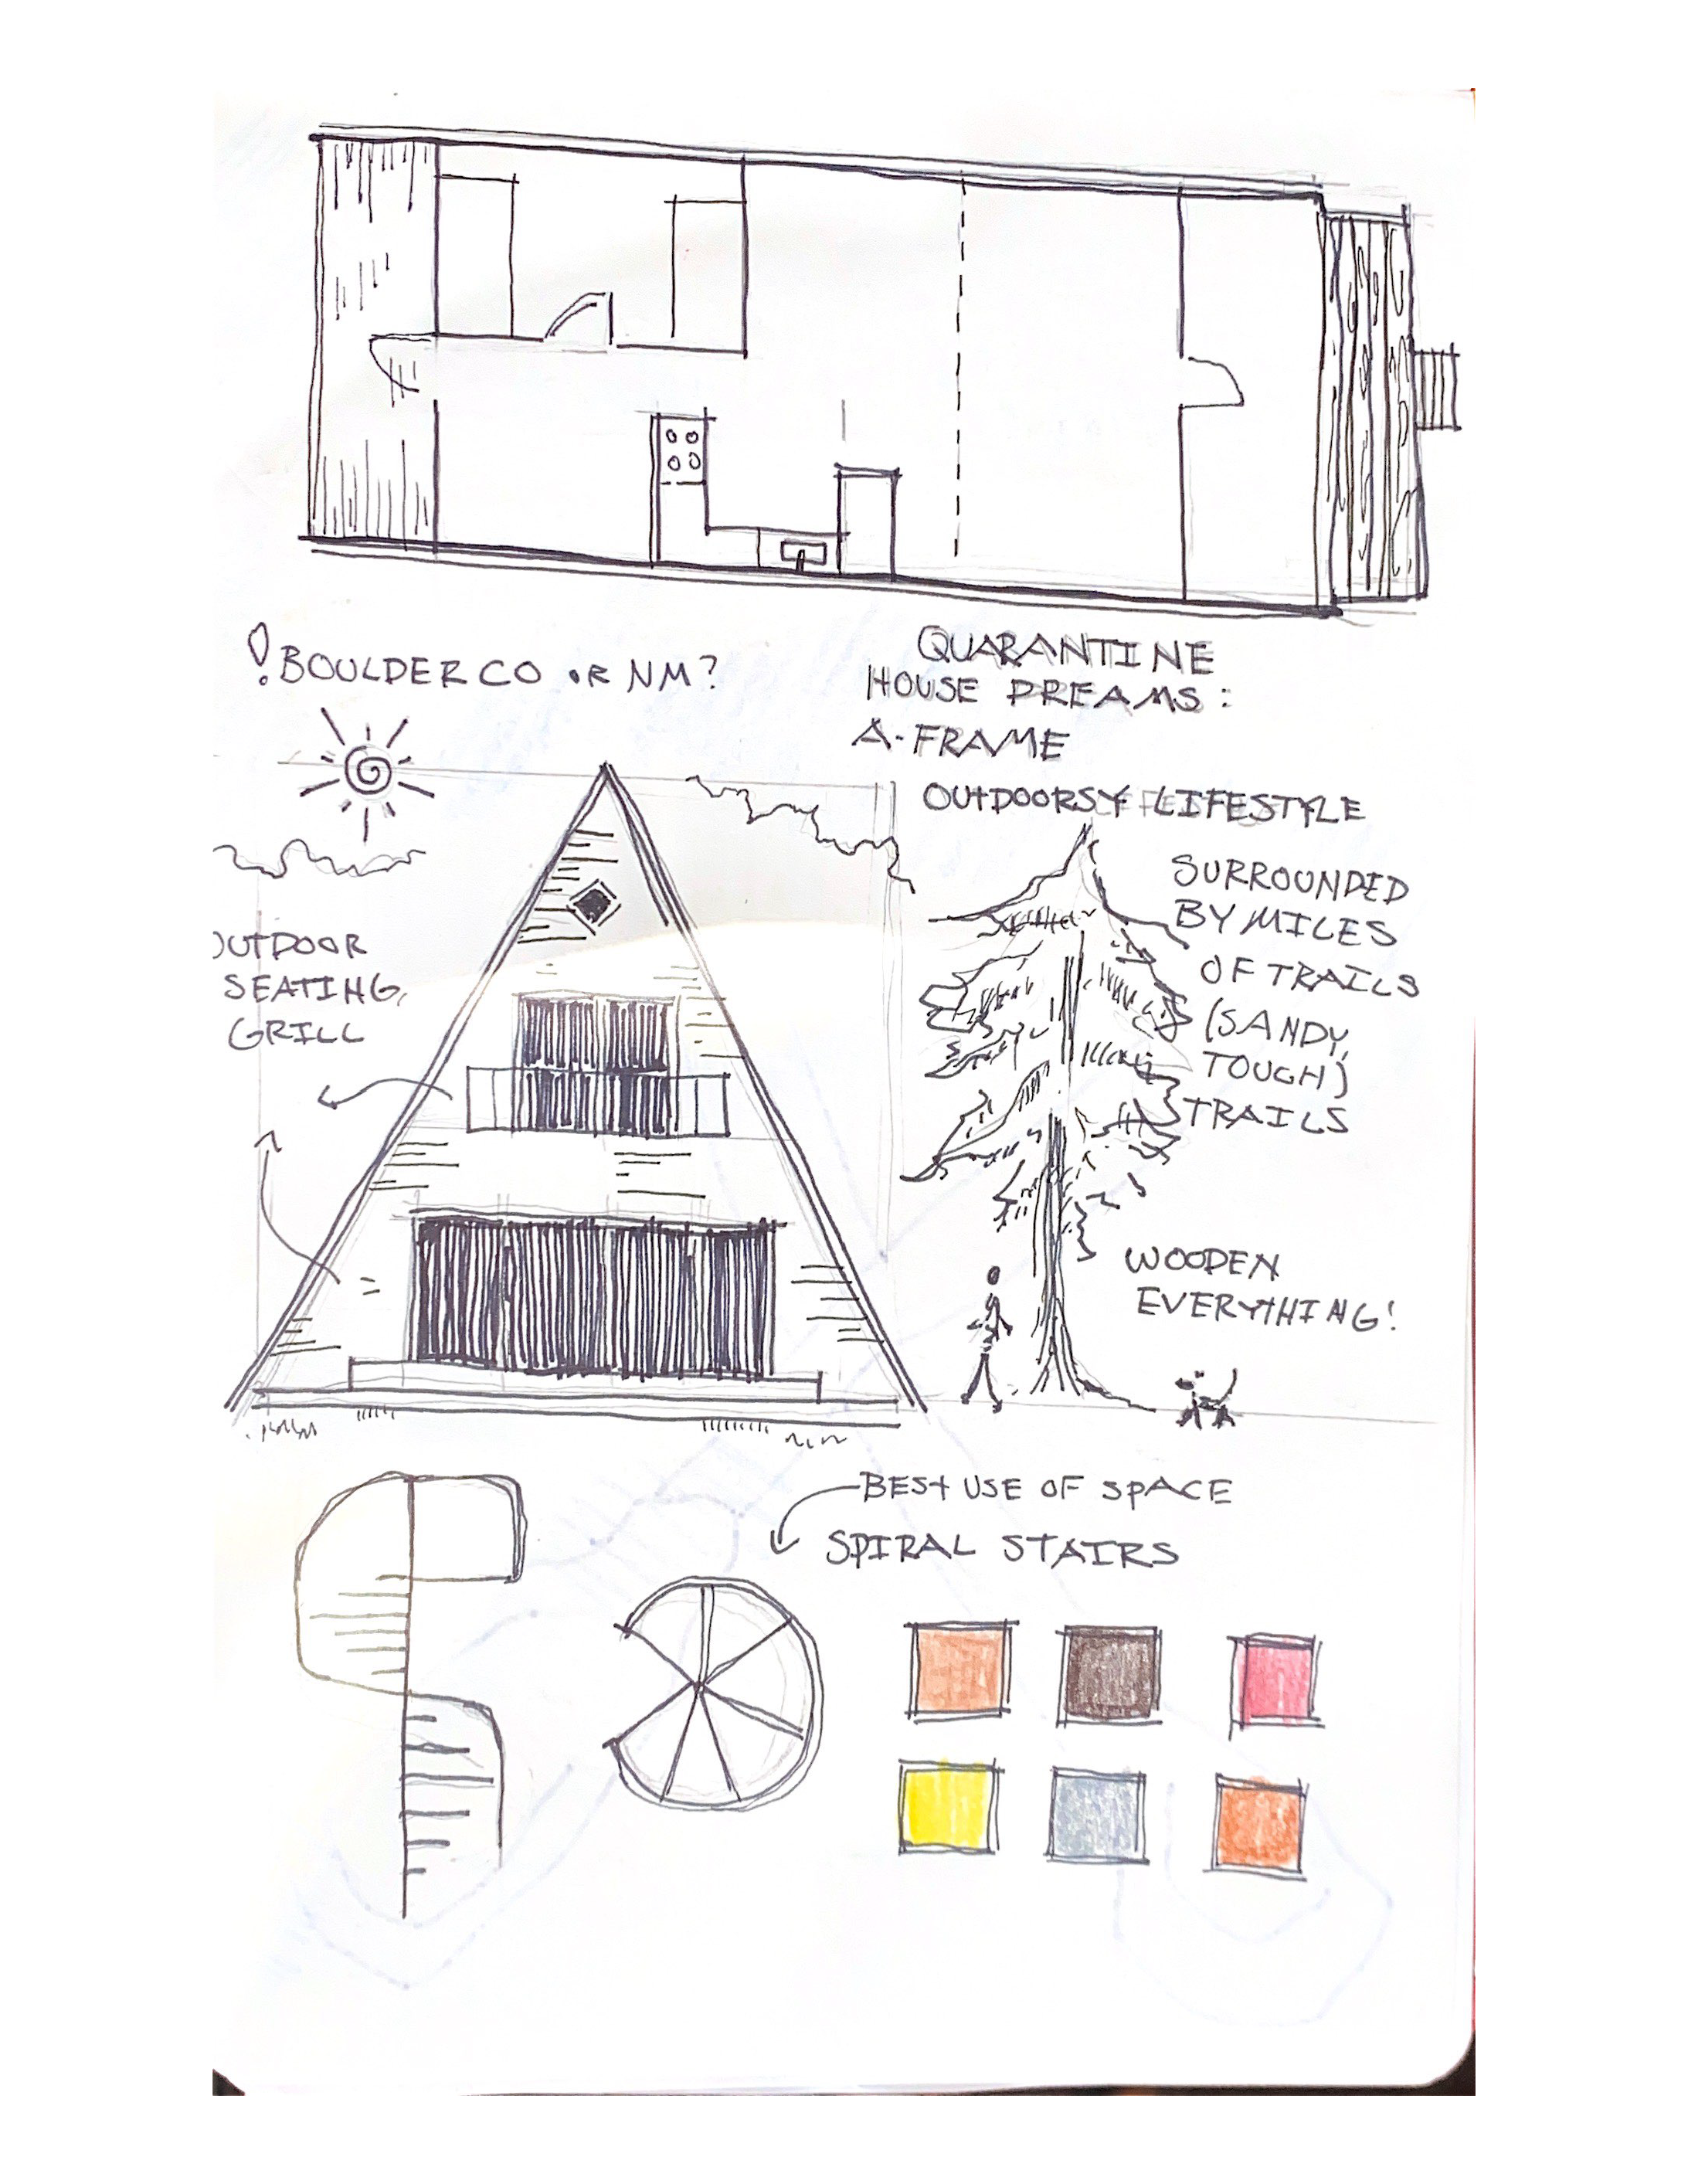 ! BOULDER CO OR NM?
QUARANTINE
HOUSE DREAMS:
A-FRAME
OUTDOORSY LIFESTYLE
SURROUNDED
BY MILES
OF TRAILS
(SANDY,
TOUGH)
TRAILS
OUTDOOR
SEATING,
GRILL
WOODEN
EVERYTHING!
BEST USE OF SPACE
SPIRAL STAIRS